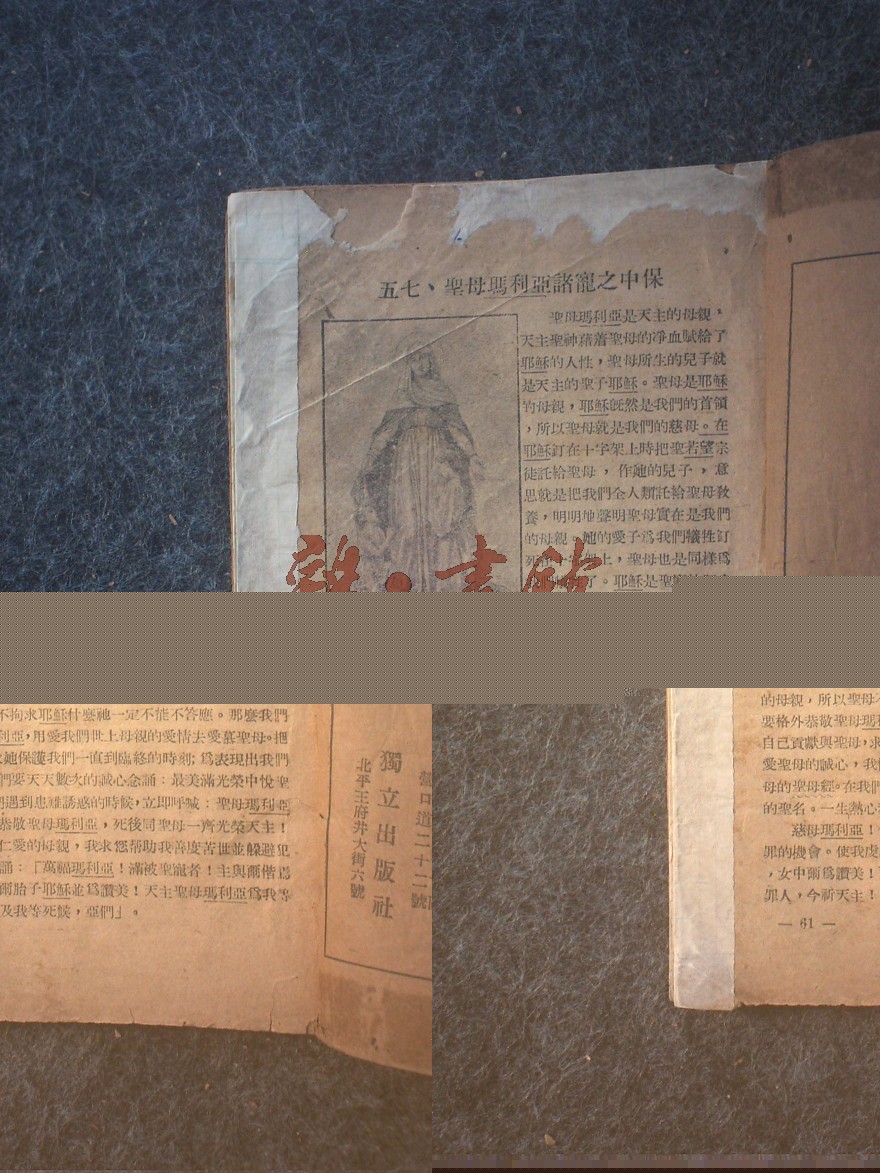 五七、聖母瑪利亞諸寵之中保
聖母瑪利亞是天主的母親,
天主聖神藉着聖母的净血賦給了
耶穌的人性,聖母所生的兒子就
是天主的聖子耶穌。聖母是耶穌
的母親,耶穌旣然是我們的首領
,所以聖母就是我們的慈母。在
耶穌釘在十字架上時把聖若望宗
徒託給聖母,作她的兒子,意
思就是把我們全人類託給聖母敎
養,明明地聲明聖母實在是我們
的母親。她的愛子爲我們犧牲釘
十字架上,聖母也是同樣爲
了。耶穌是聖寵
書
不拘求耶穌什麼祂一定不能不答應。那麼我們
利亞,用愛我們世上母親的愛情去愛慕聖母。把
她保護我們一直到臨終的時刻;爲表現出我們
們要天天數次的誠心念誦:最美滿光榮中悅聖
遇到患難誘惑的時候,立即呼喊:聖母瑪利亞
恭敬聖母瑪利亞,死後同聖母一齊光榮天主!
仁愛的母親,我求您幫助我善度苦世並躲避犯
誦:「萬福瑪利亞!滿被聖寵者!主與爾偕焉
爾胎子耶穌並爲讚美!天主聖母瑪利亞爲我等
及我等死候,亞們」。
獨立出版社
北平王府井大街六號
營口道二十二號
的母親,所以聖母
要格外恭敬聖母瑪
自己貢獻與聖母,求
愛聖母的誠心,我
母的聖母經。在我
的聖名。一生熱心
慈母瑪利亞!
罪的機會。使我虔
,女中爾爲讚美!
罪人,今祈天主!
— 61 —